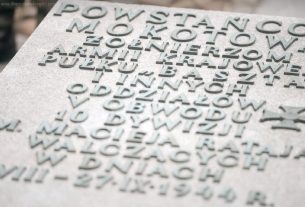 POWSTAŃCO
MOKOTOW
ŻOŁNIERZOM
ARMII KRAJOW
PUŁKU BASZTA
I INNYCH
ODDZIAŁÓW
V OBWODU
10 DYWIZJI
M. MACIEJA RATAJ
WALCZĄCYCH
W DNIACH
VIII – 27.IX.1944 R.